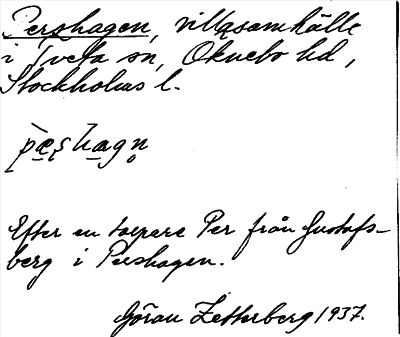 Pershagen, villasamhälle
i Tveta sn, Öknebo hd,
Stockholms l.
Efter en torpare Per från Gustafs-
berg i Pershagen.
Göran Zetterberg 1937.